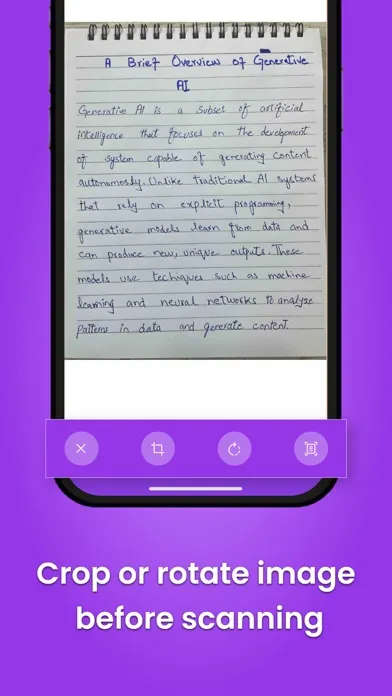 A Brief Overview of Generative
AI
Generative AI is a subset of artificial
intelligence that focuses on the development
of system capable of generating content
autonomously. Unlike traditional AI systems
that rely on explicit programming,
generative models learn from data and
can produce new, unique outputs. These
models use techiques such as machine
learning and neural networks to analyze
Patterns in data and generate content.
Crop or rotate image
before scanning